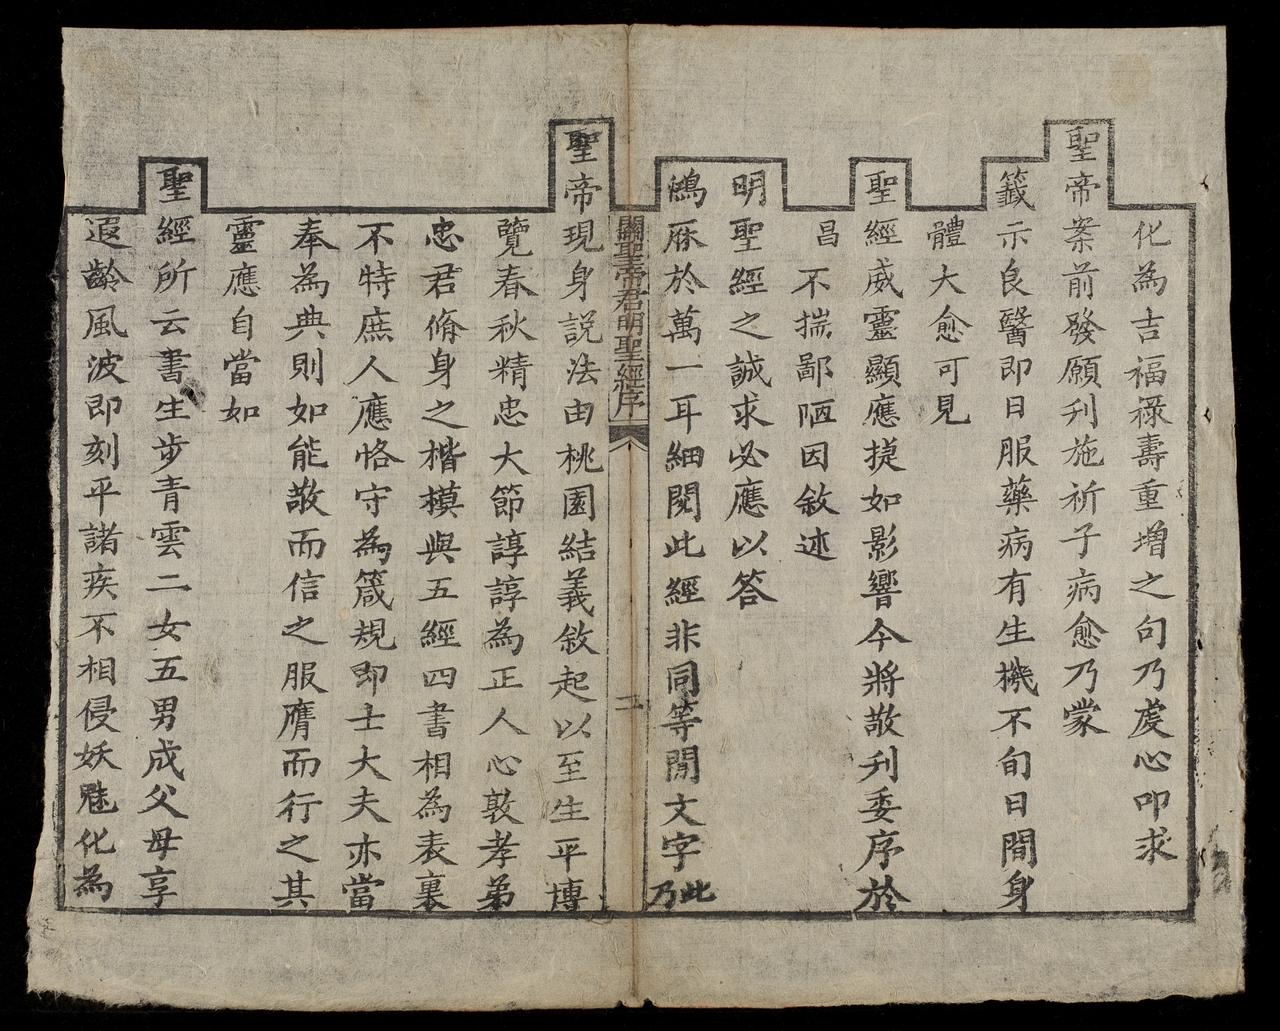 化為吉福祿壽重增之句乃虔心叩求
聖帝案前發願刋施祈子病愈乃蒙
籖示良醫即日服藥病有生機不旬日間身
體大愈可見
聖經威靈顯應捷如影響今將敬刋委序於
昌不揣鄙陋因敘述
明聖經之誠求必應以答
鴻庥於萬一耳細閱此經非同等閒文字此乃
關聖帝君明聖經序
二
聖帝現身説法由桃園結義敘起以至生平博
覽春秋精忠大節諄諄為正人心敦孝弟
忠君脩身之楷模與五經四書相為表裏
不特庶人應恪守為箴規即士大夫亦當
奉為典則如能敬而信之服膺而行之其
靈應自當如
聖經所云書生步青雲二女五男成父母享
遐齡風波即刻平諸疾不相侵妖魅化為